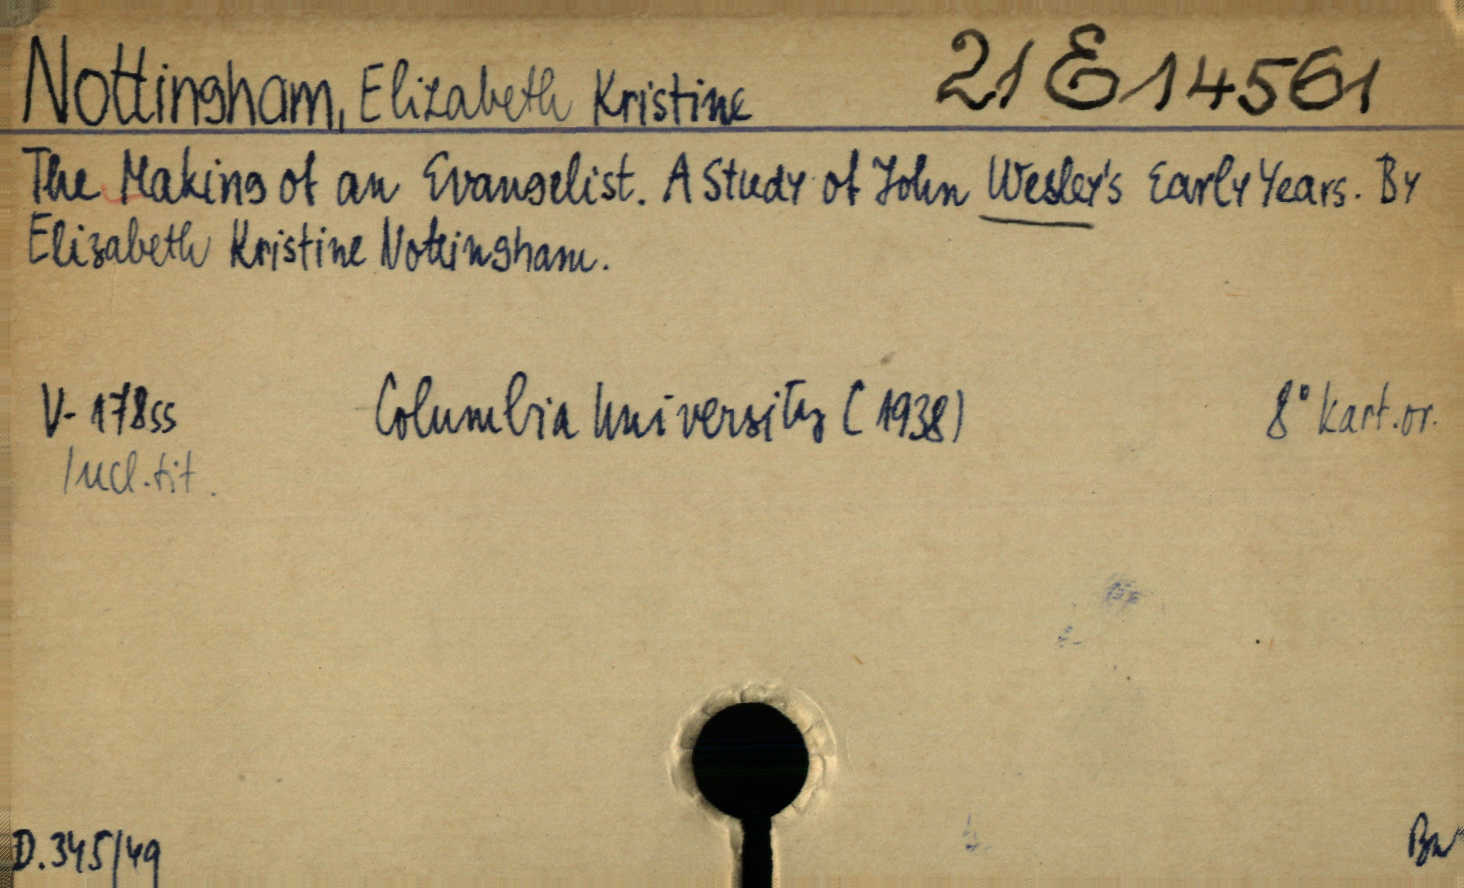 Nottingham, Elizabeth Kristine 21 E 14561
The Making of an Evangelist. A Study of John Wesley's Early Years. By
Elizabeth Kristine Nottingham.
V-178ss Columbia University (1938) 8° kart.or.
Incl.tit.
D.345/49 Bw